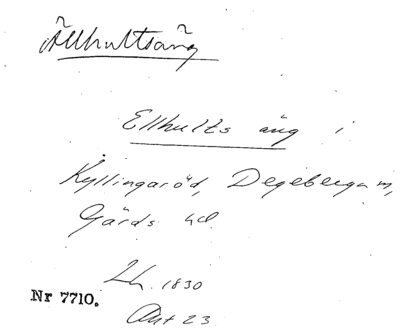 Ällhultsäng
Ellhults äng i
Kyllingaröd, Degeberga sn,
Gärds hd
Lh. 1830
Nr 7710.
Akt 23